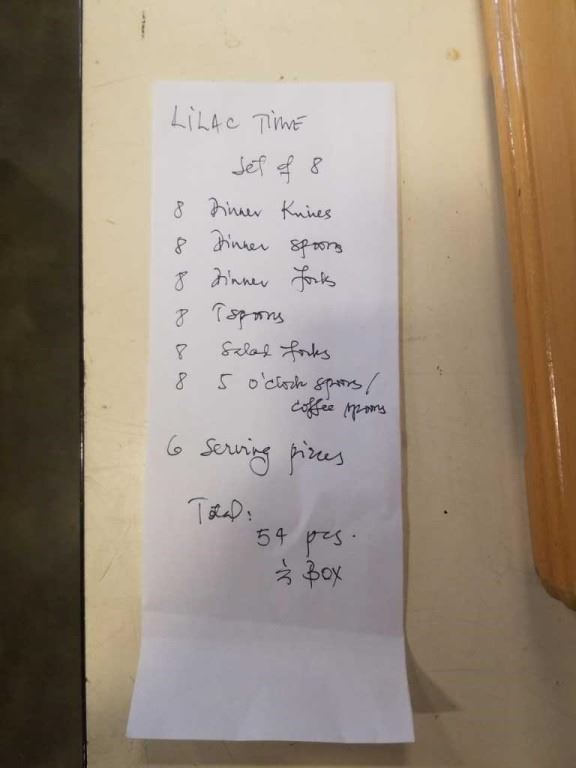 LiLAC TIME
Set of 8
8 Dinner Knives
8 Dinner spoons
8 Dinner Forks
8 Tspoons
8 Salad Forks
8 5 o'clock spoons/
coffee spoons
6 Serving pieces
Total:
54 pcs.
BOX